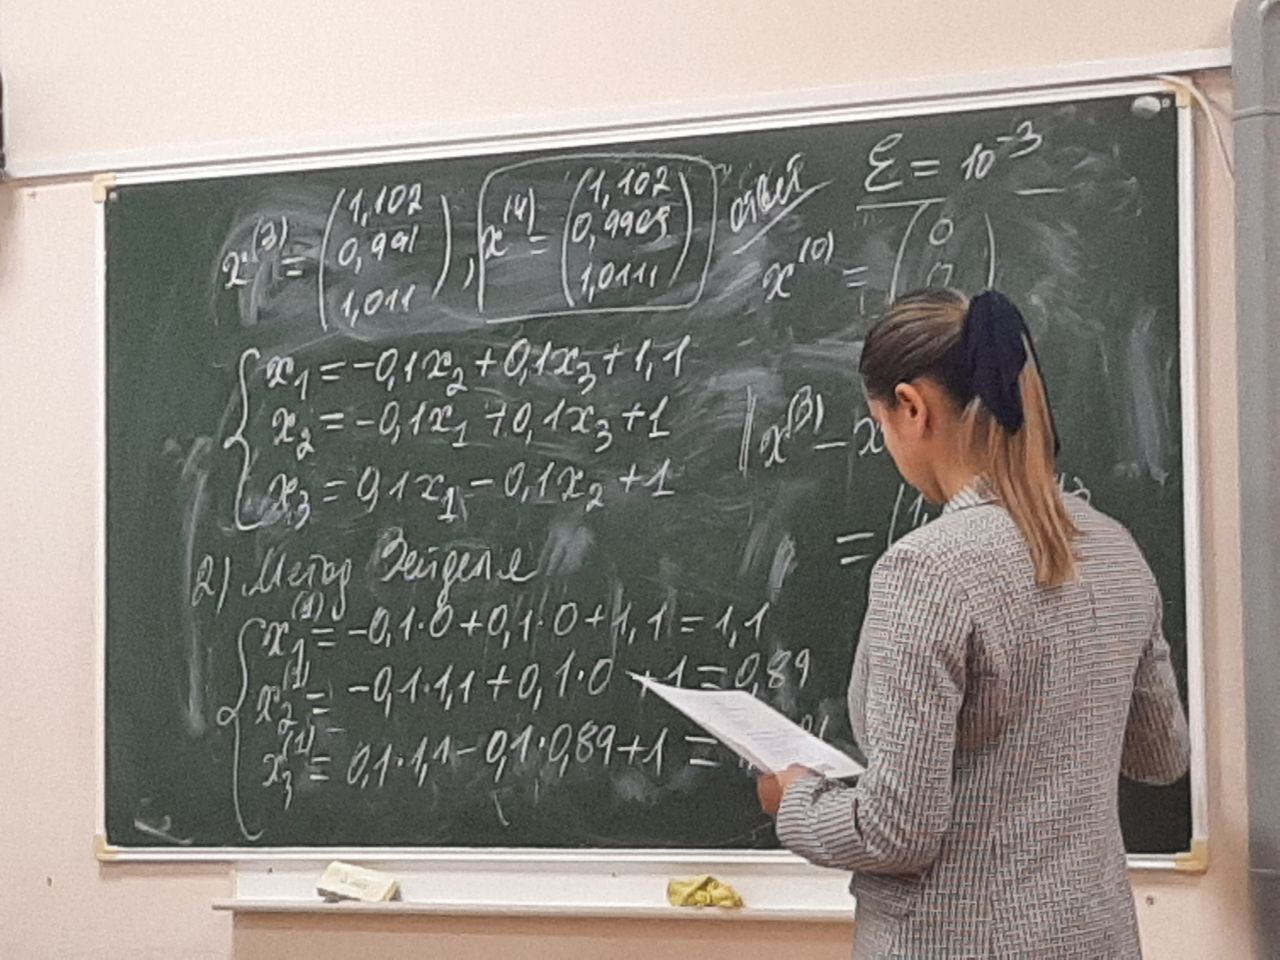 x⁽³⁾ = (1,102 0,991 1,011), x⁽⁴⁾ = (1,102 0,9909 1,0111) ответ
ε = 10⁻³
x⁽⁰⁾ = (0 0
x₁ = -0,1x₂ + 0,1x₃ + 1,1
x₂ = -0,1x₁ + 0,1x₃ + 1
x₃ = 0,1x₁ - 0,1x₂ + 1
‖x⁽³⁾ - x
= (1,
2) Метод Зейделя
x₁⁽¹⁾ = -0,1·0 + 0,1·0 + 1,1 = 1,1
x₂⁽¹⁾ = -0,1·1,1 + 0,1·0 + 1 = 0,89
x₃⁽¹⁾ = 0,1·1,1 - 0,1·0,89 + 1 =